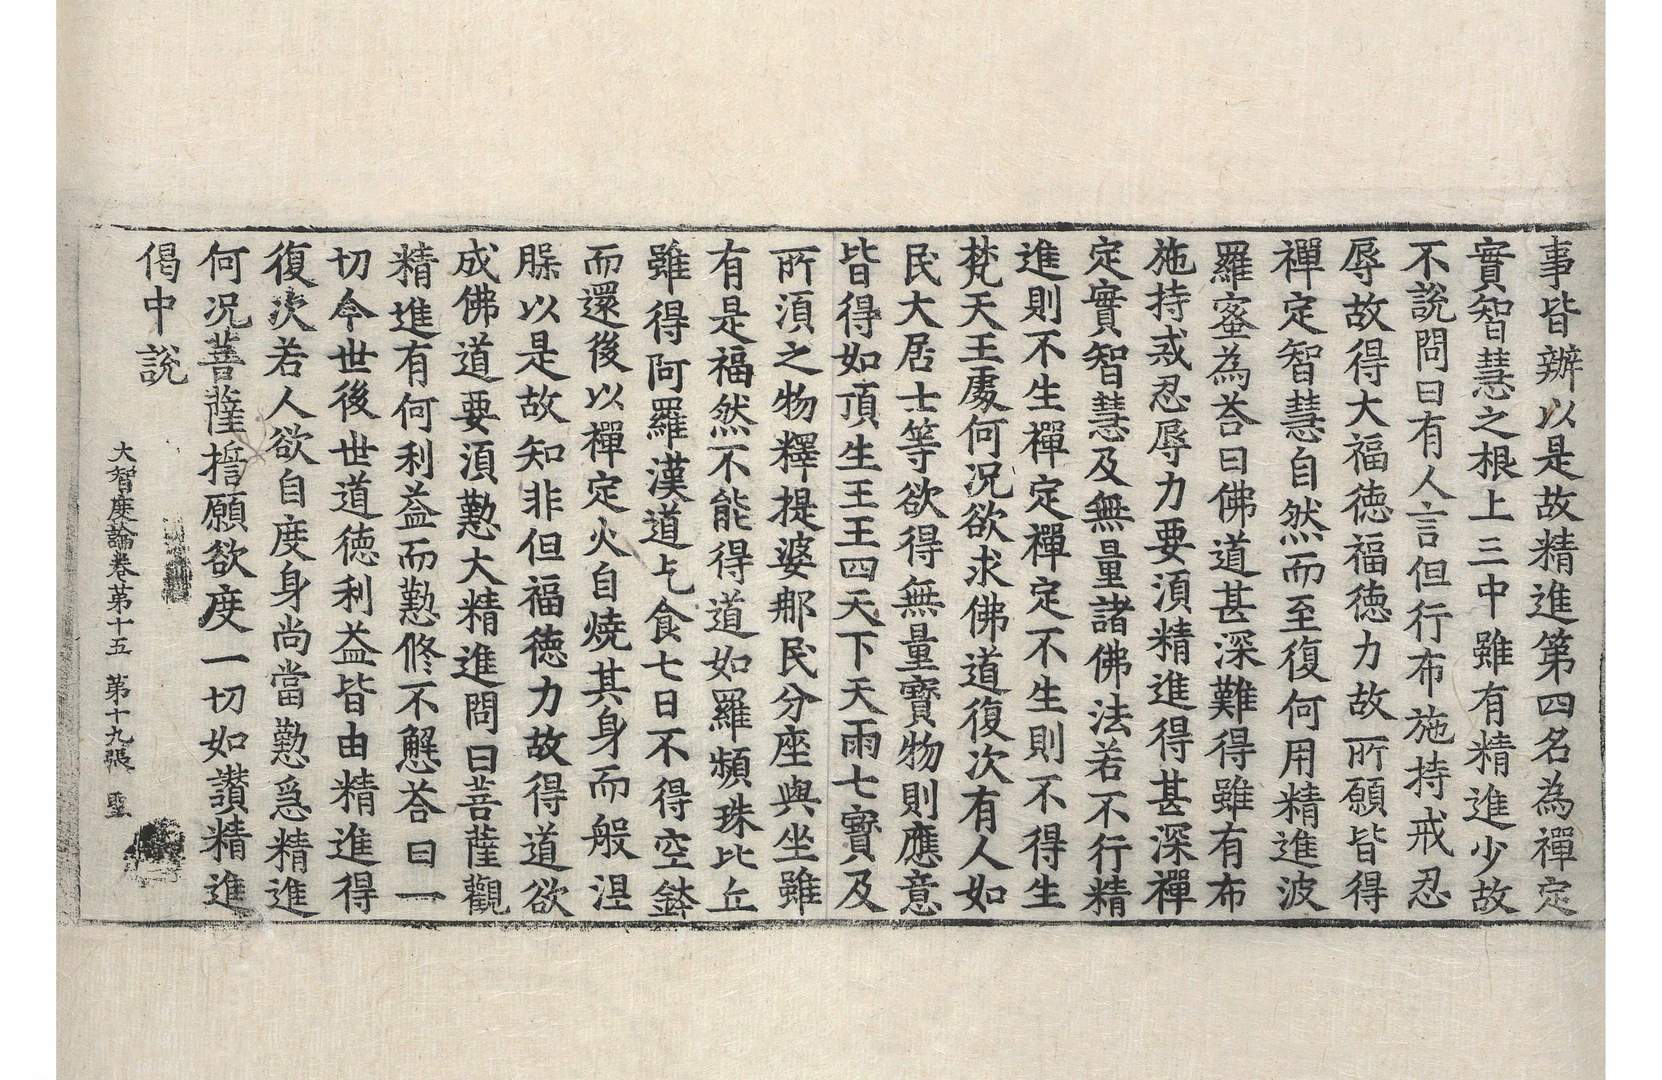 事皆辦以是故精進第四名為禪定
實智慧之根上三中雖有精進少故
不說問曰有人言但行布施持戒忍
辱故得大福德福德力故所願皆得
禪定智慧自然而至復何用精進波
羅蜜為荅曰佛道甚深難得雖有布
施持戒忍辱力要須精進得甚深禪
定實智慧及無量諸佛法若不行精
進則不生禪定禪定不生則不得生
梵天王處何況欲求佛道復次有人如
民大居士等欲得無量寶物則應意
皆得如頂生王王四天下天雨七寶及
所須之物釋提婆那民分座與坐雖
有是福然不能得道如羅頻珠比丘
雖得阿羅漢道乞食七日不得空鉢
而還後以禪定火自燒其身而般涅
槃以是故知非但福德力故得道欲
成佛道要須懃大精進問曰菩薩觀
精進有何利益而懃修不懈荅曰一
切今世後世道德利益皆由精進得
復次若人欲自度身尚當懃急精進
何況菩薩誓願欲度一切如讚精進
偈中說
大智度論卷第十五 第十九張 聖